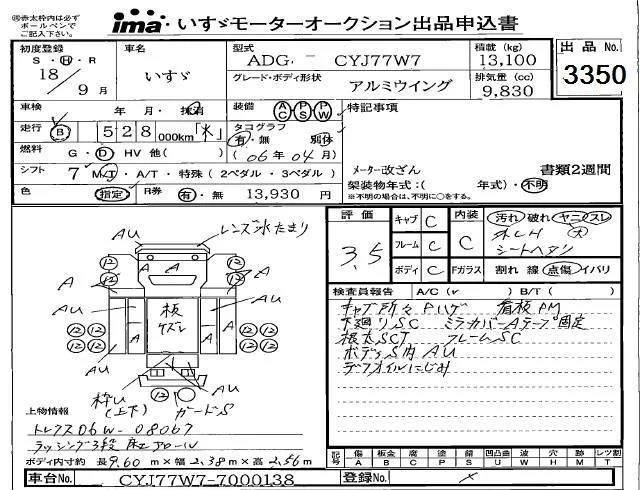 ◎赤太枠内は必ず
ボールペンで
ご記入下さい。
ima いすゞモーターオークション出品申込書
初度登録
S・H・R
18
9月
車名
いすゞ
型式
ADG - CYJ77W7
グレード・ボディ形状
アルミウイング
積載 (kg)
13,100
排気量 (cc)
9,830
出品 No.
3350
車検 年・月・抹消
装備 AC PS PW
特記事項
走行 B 528 000km
タコグラフ
有・無 別体
(06年04月)
燃料 G・D HV 他( )
シフト 7 MT・A/T・特殊(2ペダル・3ペダル)
色 指定 R券 有・無 13,930円
メーター改ざん 書類2週間
架装物年式:( 年式)・不明
※不明の場合は、不明に○をする。
評価
3.5
キャブ C
フレーム C
ボディ C
内装
C
Fガラス
汚れ 破れ ヤニ スレ
シートヘタリ
割れ 線 点傷 イバリ
検査員報告 A/C ( ) B/T ( )
キャブ所々Pハゲ 看板PM
下廻りSC ミラーカバーAテープ固定
根太SCT フレームSC
ボディS内AU
デフオイルにじみ
AU
レンズ水たまり
A
板
ケズレ
12
枠い
(上下)
ガードS
上物情報
トレクス D6W-08067
ラッシング3段 床エアロール
ボディ内寸約 長9.60m×幅2.38m×高2.56m
記号 傷 板金 腐 塗 錆 凹凸曲 波 穴 跡 レツ割
A B C P S U W H M T
車台No. CYJ77W7-7000138
登録No.